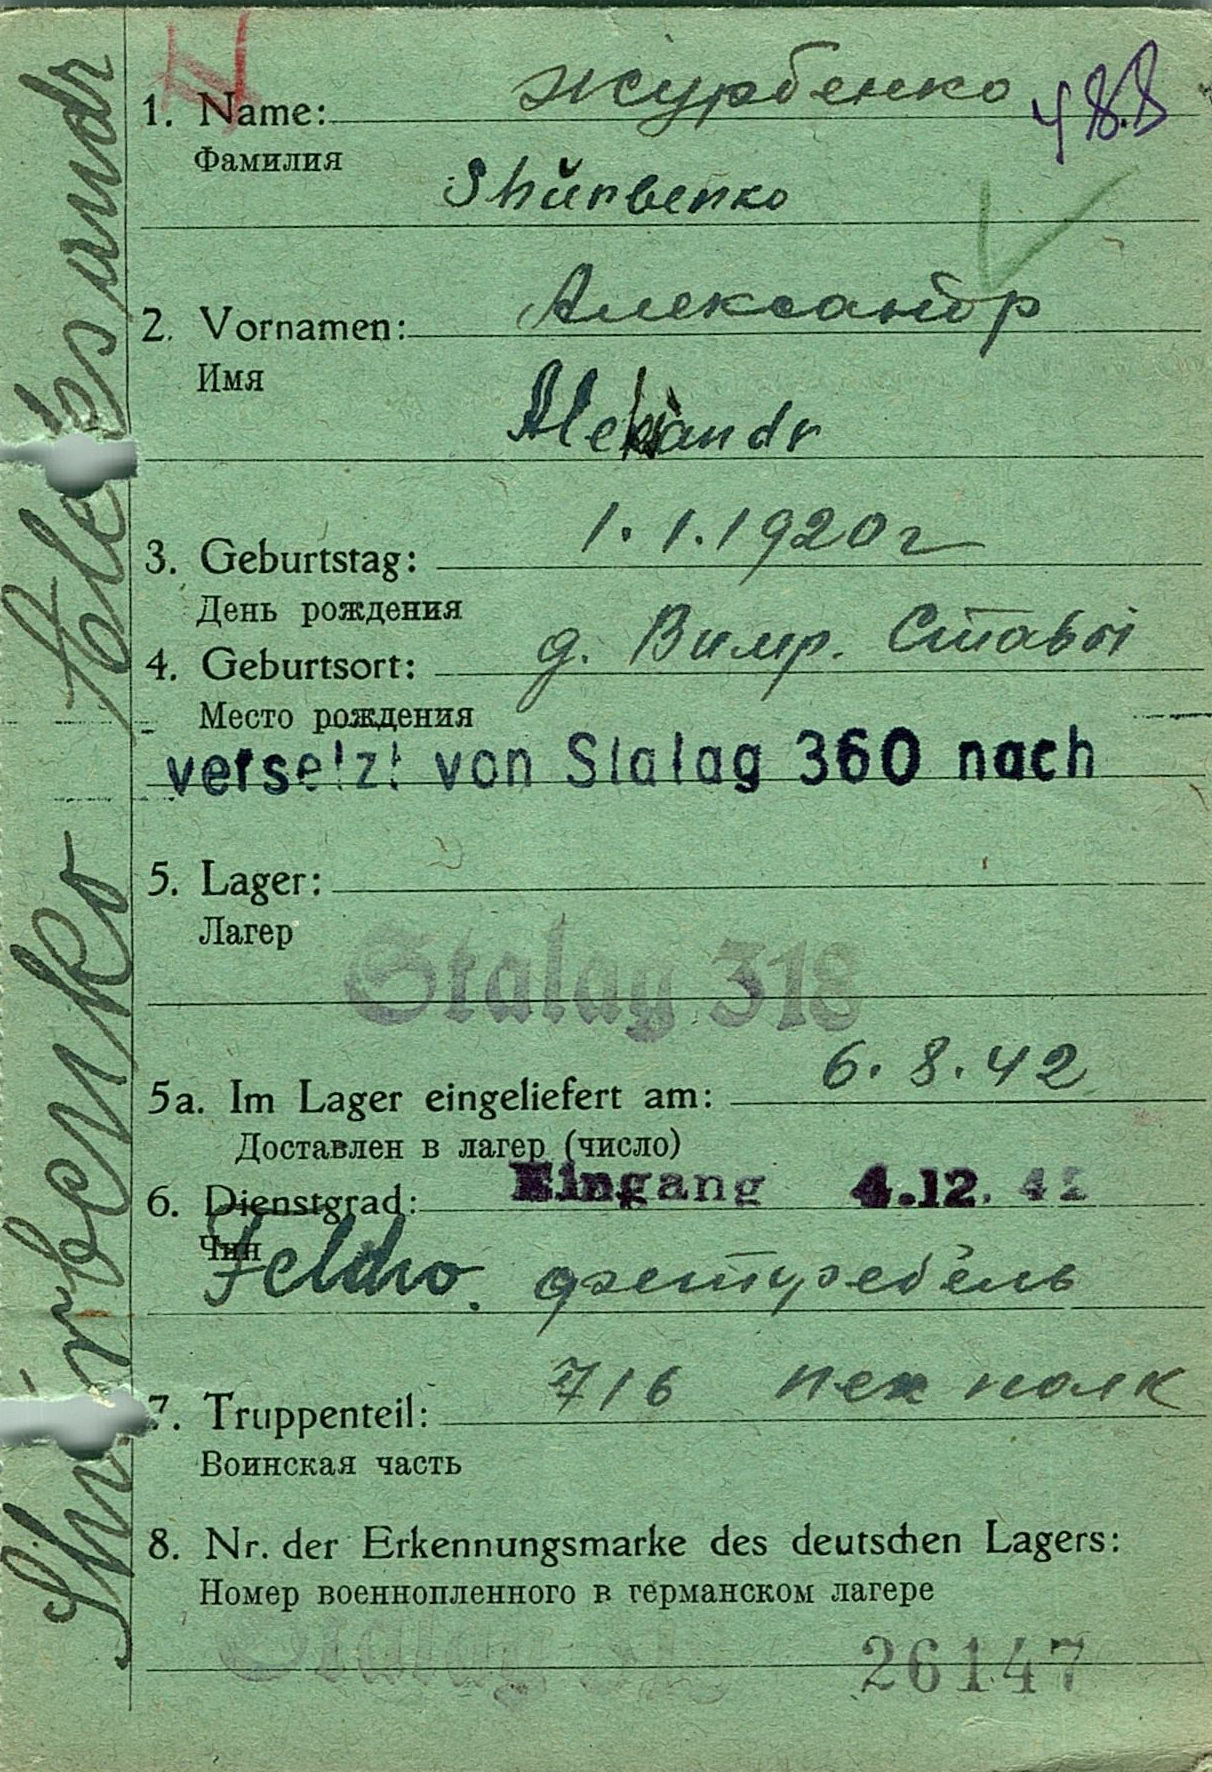 1. Name: Журбенко 488
Фамилия
Shŭrbenko
2. Vornamen: Александр
Имя
Aleksandr
3. Geburtstag: 1.1.1920г
День рождения
4. Geburtsort: д. Вимр. Ставы
Место рождения
versetzt von Stalag 360 nach
5. Lager:
Лагер
Stalag 318
5a. Im Lager eingeliefert am: 6.8.42
Доставлен в лагер (число)
6. Dienstgrad: Eingang 4.12.42
Чин
Feldw. фетуребель
7. Truppenteil: 716 пех полк
Воинская часть
8. Nr. der Erkennungsmarke des deutschen Lagers:
Номер военнопленного в германском лагере
Stalag 318 26147
Shŭrbenko Aleksandr